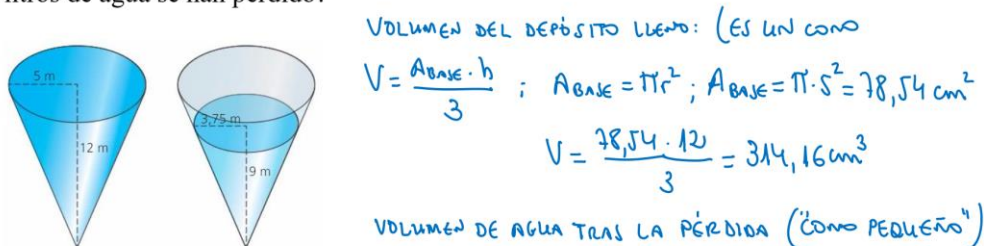 litros de agua se han perdido?
VOLUMEN DEL DEPÓSITO LLENO: (ES UN CONO
V = ABASE · h / 3 ; ABASE = πr² ; ABASE = π·5² = 78,54 cm²
V = 78,54 · 12 / 3 = 314,16 cm³
VOLUMEN DE AGUA TRAS LA PÉRDIDA ("CONO PEQUEÑO")
5 m
12 m
3,75 m
9 m